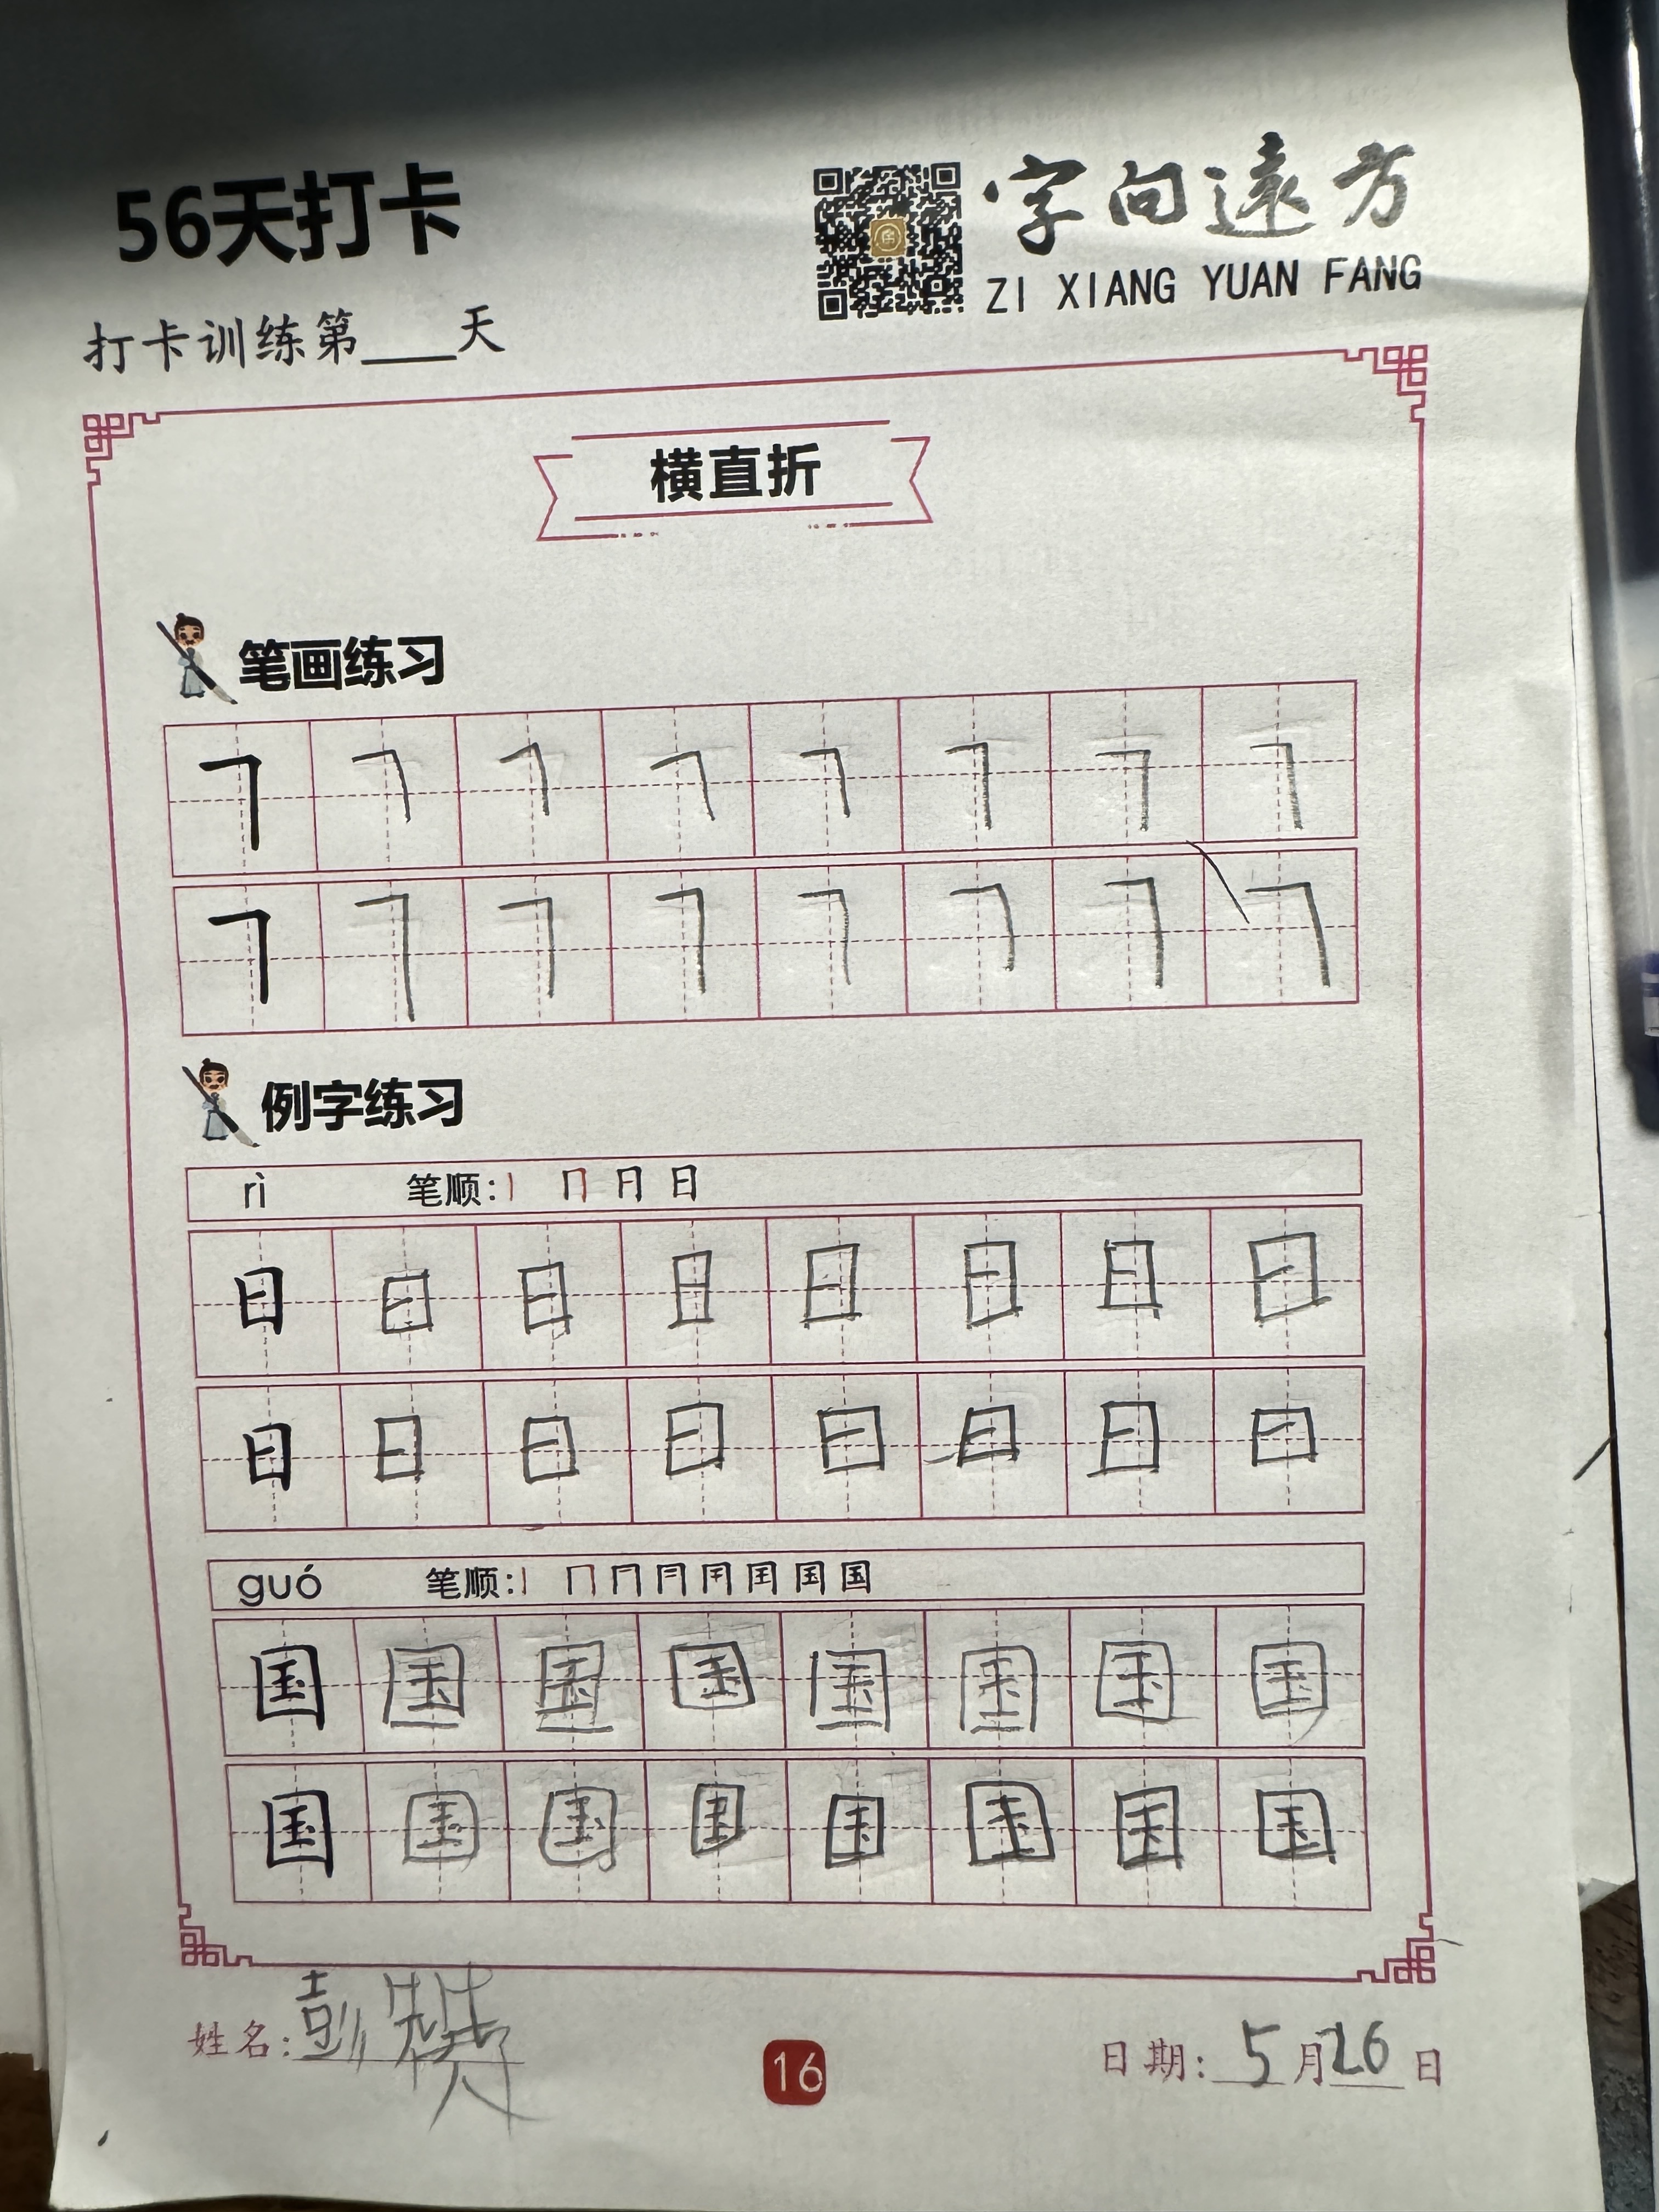 56天打卡
字向遠方
ZI XIANG YUAN FANG
打卡训练第____天
横直折
笔画练习
𠃍 𠃍 𠃍 𠃍 𠃍 𠃍 𠃍 𠃍
𠃍 𠃍 𠃍 𠃍 𠃍 𠃍 𠃍 𠃍
例字练习
rì 笔顺: 丨 冂 月 日
日 日 日 日 日 日 日 日
日 日 日 日 日 日 日 日
guó 笔顺: 国
国 国 国 国 国 国 国 国
国 国 国 国 国 国 国 国
姓名: 彭赞
16
日期: 5月26日